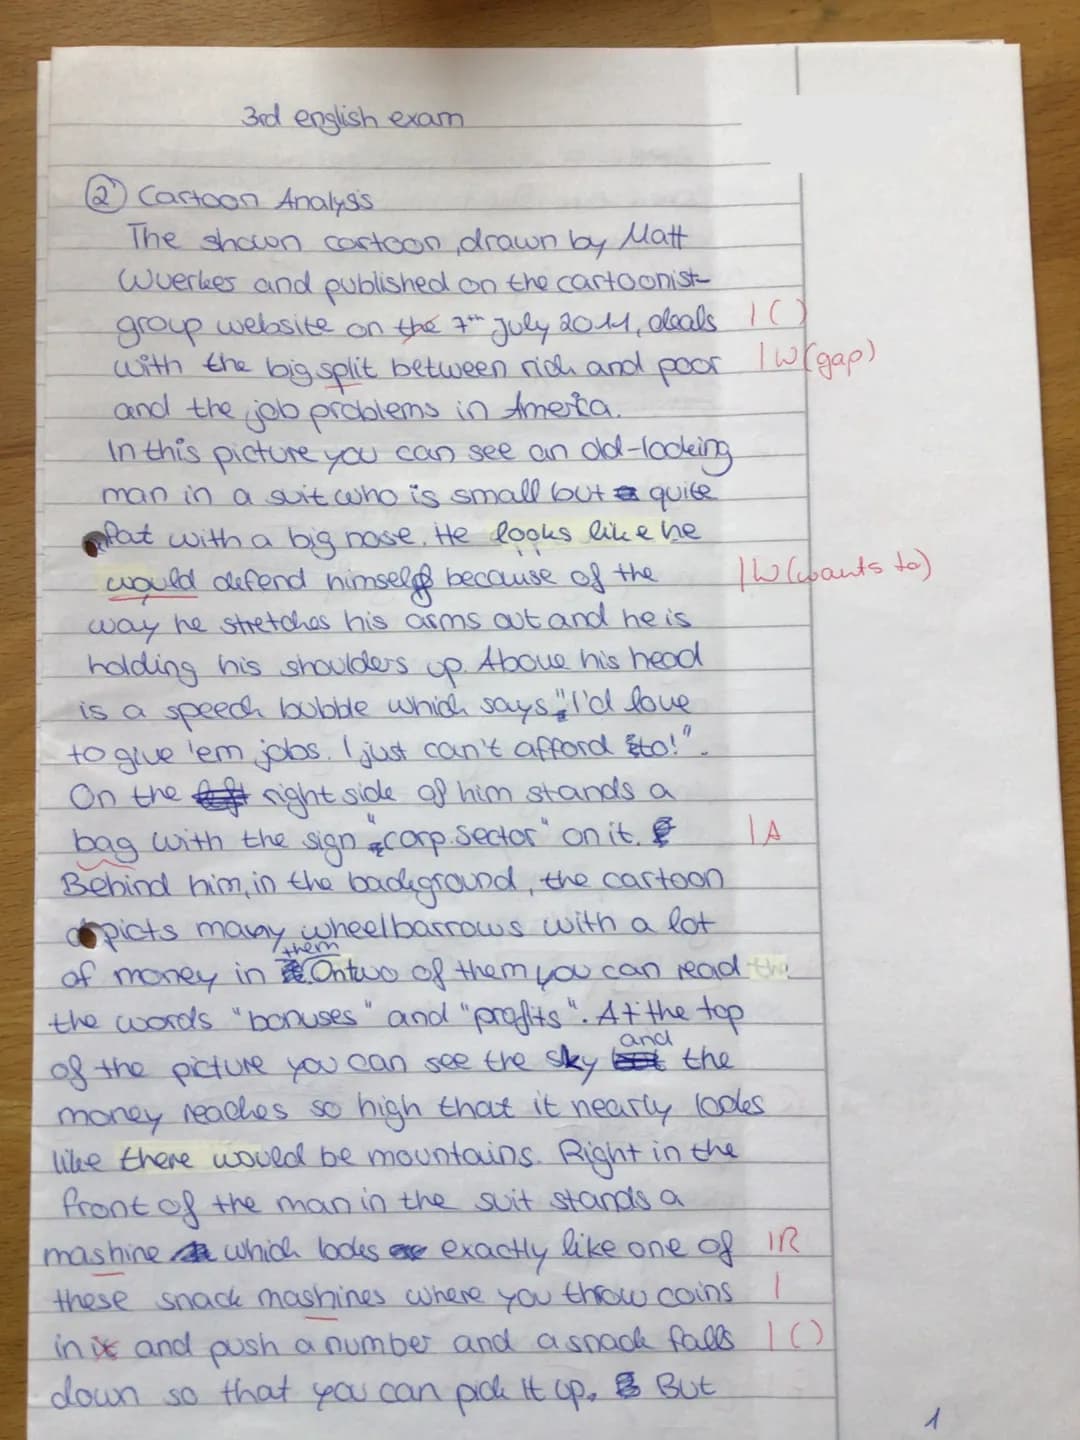 3rd english exam
② Cartoon Analysis
The shown cartoon, drawn by Matt
Wuerker and published on the cartoonist-
group website on the 7th july 2011, deals | ( )
with the big split between rich and poor | W (gap)
and the job problems in America.
In this picture you can see an old-looking
man in a suit who is small but quite
fat with a big nose. He looks like he
would defend himself because of the | W (wants to)
way he stretches his arms out and he is
holding his shoulders up. Above his head
is a speech bubble which says "I'd love
to give 'em jobs. I just can't afford to!".
On the left right side of him stands a
bag with the sign "corp. sector" on it. | A
Behind him, in the background, the cartoon
depicts many wheelbarrows with a lot
of money in them. On two of them you can read the
the words "bonuses" and "profits". At the top
of the picture you can see the sky and the
money reaches so high that it nearly looks
like there would be mountains. Right in the
front of the man in the suit stands a
mashine which looks exactly like one of | R
these snack mashines where you throw coins |
in it and push a number and a snack falls | ( )
down so that you can pick it up. But
1